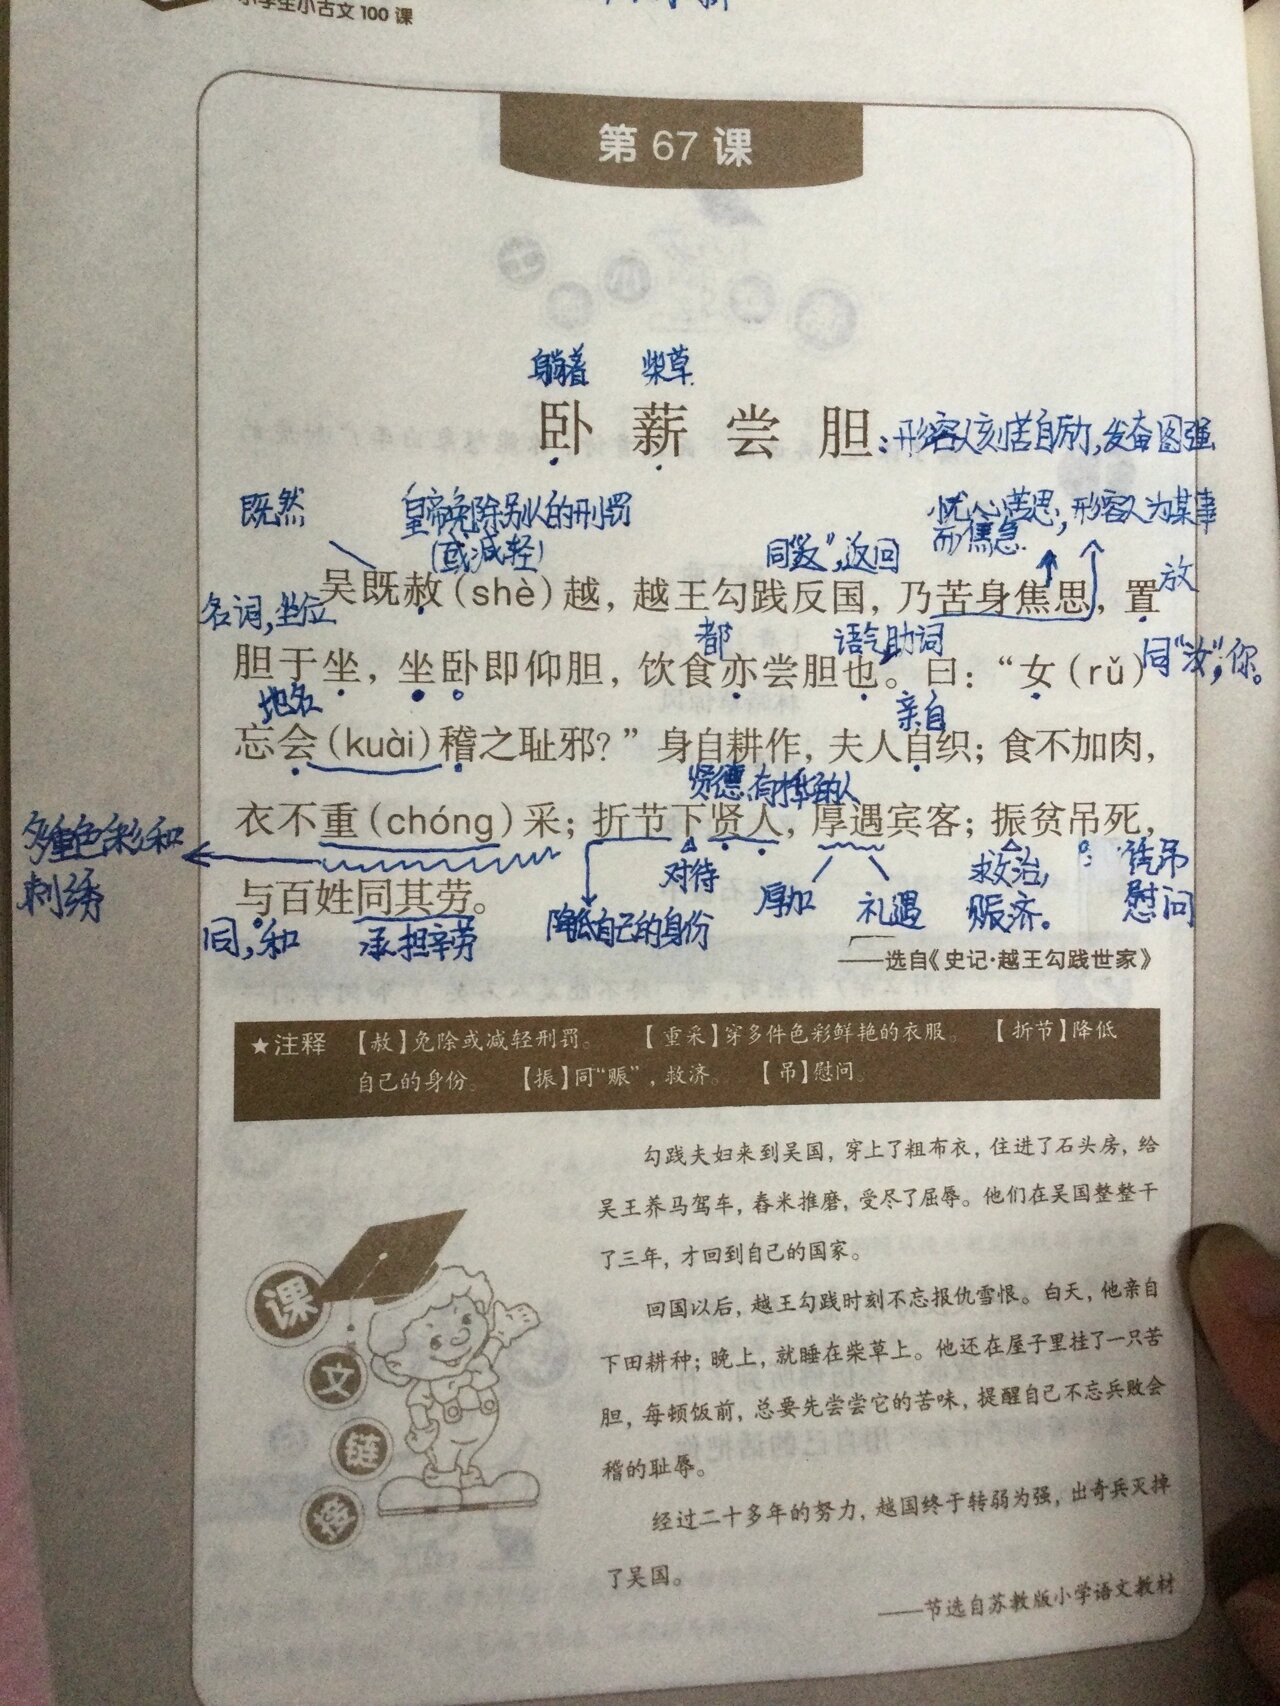 小学生小古文100课
第67课
躺着 柴草
卧薪尝胆
:形容人刻苦自励,发奋图强
既然 皇帝免除别人的刑罚
(或减轻)
同"返",返回
忧心苦思,形容人为某事
而焦急.
吴既赦(shè)越,越王勾践反国,乃苦身焦思,置
放
名词,坐位
都 语气助词
胆于坐,坐卧即仰胆,饮食亦尝胆也。曰:“女(rǔ)
同"汝",你。
地名 亲自
忘会(kuài)稽之耻邪?”身自耕作,夫人自织;食不加肉,
贤德,有才华的人
衣不重(chóng)采;折节下贤人,厚遇宾客;振贫吊死,
多重色彩和
刺绣
对待 厚加 礼遇 救治,
赈济。
慰问
与百姓同其劳。
同,和 承担辛劳 降低自己的身份
——选自《史记·越王勾践世家》
★注释 【赦】免除或减轻刑罚。 【重采】穿多件色彩鲜艳的衣服。 【折节】降低
自己的身份。 【振】同“赈”,救济。 【吊】慰问。
课文链接
勾践夫妇来到吴国,穿上了粗布衣,住进了石头房,给
吴王养马驾车,舂米推磨,受尽了屈辱。他们在吴国整整干
了三年,才回到自己的国家。
回国以后,越王勾践时刻不忘报仇雪恨。白天,他亲自
下田耕种;晚上,就睡在柴草上。他还在屋子里挂了一只苦
胆,每顿饭前,总要先尝尝它的苦味,提醒自己不忘兵败会
稽的耻辱。
经过二十多年的努力,越国终于转弱为强,出奇兵灭掉
了吴国。
——节选自苏教版小学语文教材